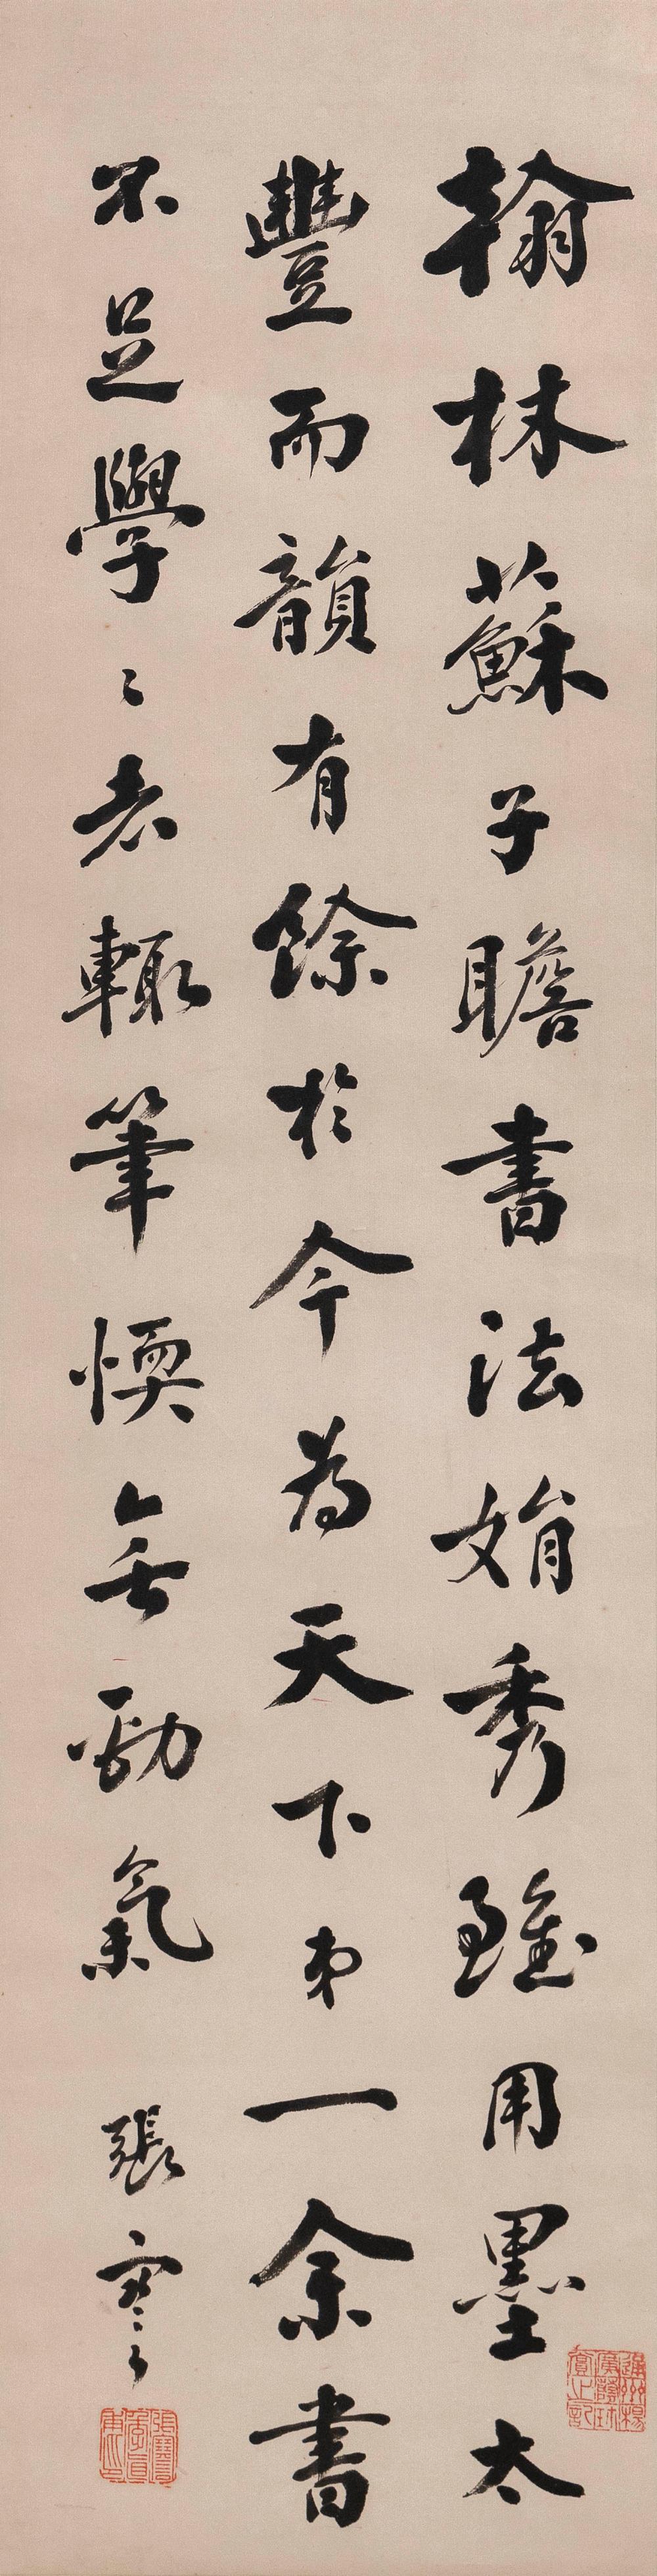 翰林蘇子瞻書法娟秀雖用墨太
豐而韻有餘於今為天下弟一余書
不足學〻者輒筆愞無勁氣
張謇